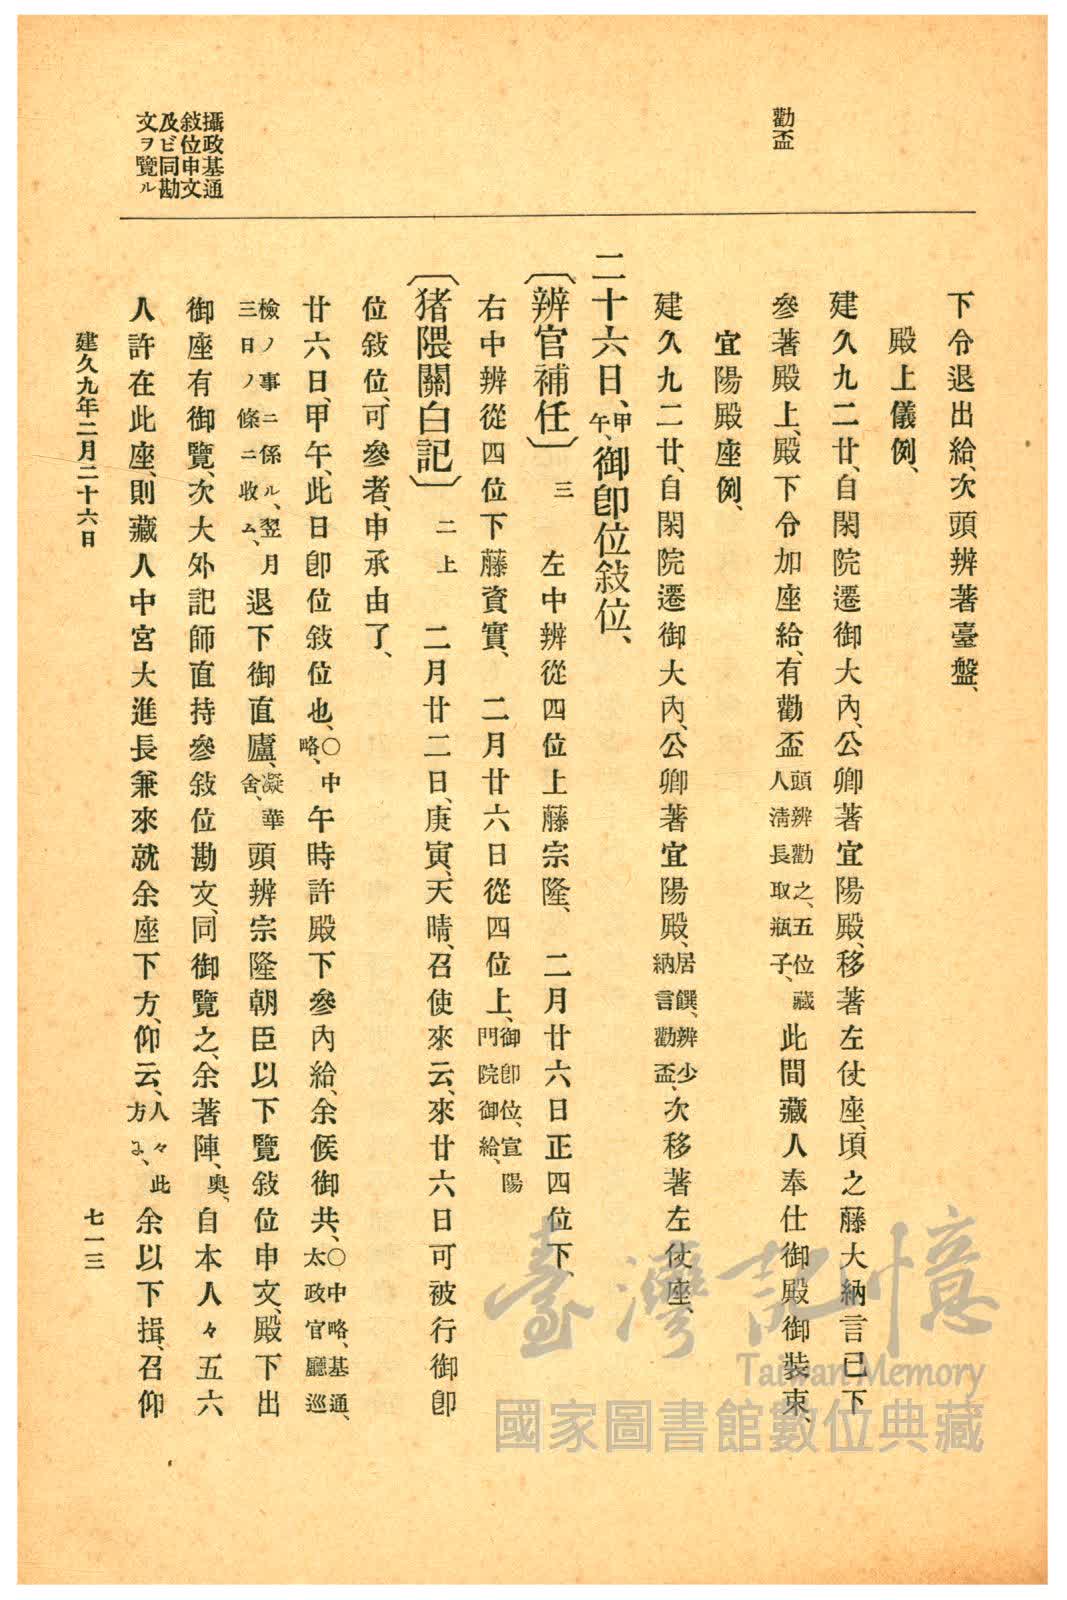 勸盃
攝政基通
敍位申文
及ビ同勘
文ヲ覽ル
下令退出給、次頭辨著臺盤、
殿上儀例、
建久九二廿、自閑院遷御大內、公卿著宜陽殿、移著左仗座、頃之藤大納言已下
參著殿上、殿下令加座給、有勸盃頭辨勸之、五位藏人淸長取瓶子、此間藏人奉仕御殿御裝束、
宜陽殿座例、
建久九二廿、自閑院遷御大內、公卿著宜陽殿、居饌、辨少納言勸盃、次移著左仗座、
二十六日、甲午、御卽位敍位、
〔辨官補任〕三 左中辨從四位上藤宗隆、 二月廿六日正四位下、
右中辨從四位下藤資實、 二月廿六日從四位上、御卽位、宣陽門院御給、
〔猪隈關白記〕二上 二月廿二日、庚寅、天晴、召使來云、來廿六日可被行御卽
位敍位、可參者、申承由了、
廿六日、甲午、此日卽位敍位也、○中略、午時許殿下參內給、余候御共、○中略、基通、太政官廳巡
檢ノ事ニ係ル、翌月三日ノ條ニ收ム、退下御直廬、凝華舍、頭辨宗隆朝臣以下覽敍位申文、殿下出
御座有御覽、次大外記師直持參敍位勘文、同御覽之、余著陣、奧、自本人々五六
人許在此座、則藏人中宮大進長兼來就余座下方、仰云、人々此方ニ、余以下揖、召仰
建久九年二月二十六日
七一三
臺灣記憶
Taiwan Memory
國家圖書館數位典藏